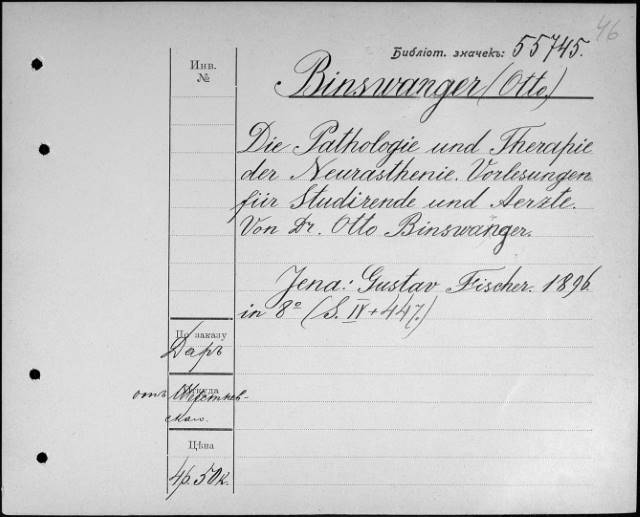 46
Библіот. значекъ: 55745.
Инв.
№
Binswanger (Otto)
Die Pathologie und Therapie
der Neurasthenie. Vorlesungen
für Studirende und Aerzte.
Von Dr. Otto Binswanger.
Jena: Gustav Fischer. 1896
in 8º (S. IV + 447.)
По заказу
Даръ
Откуда
отъ
скаго.
Цѣна
4р. 50к.